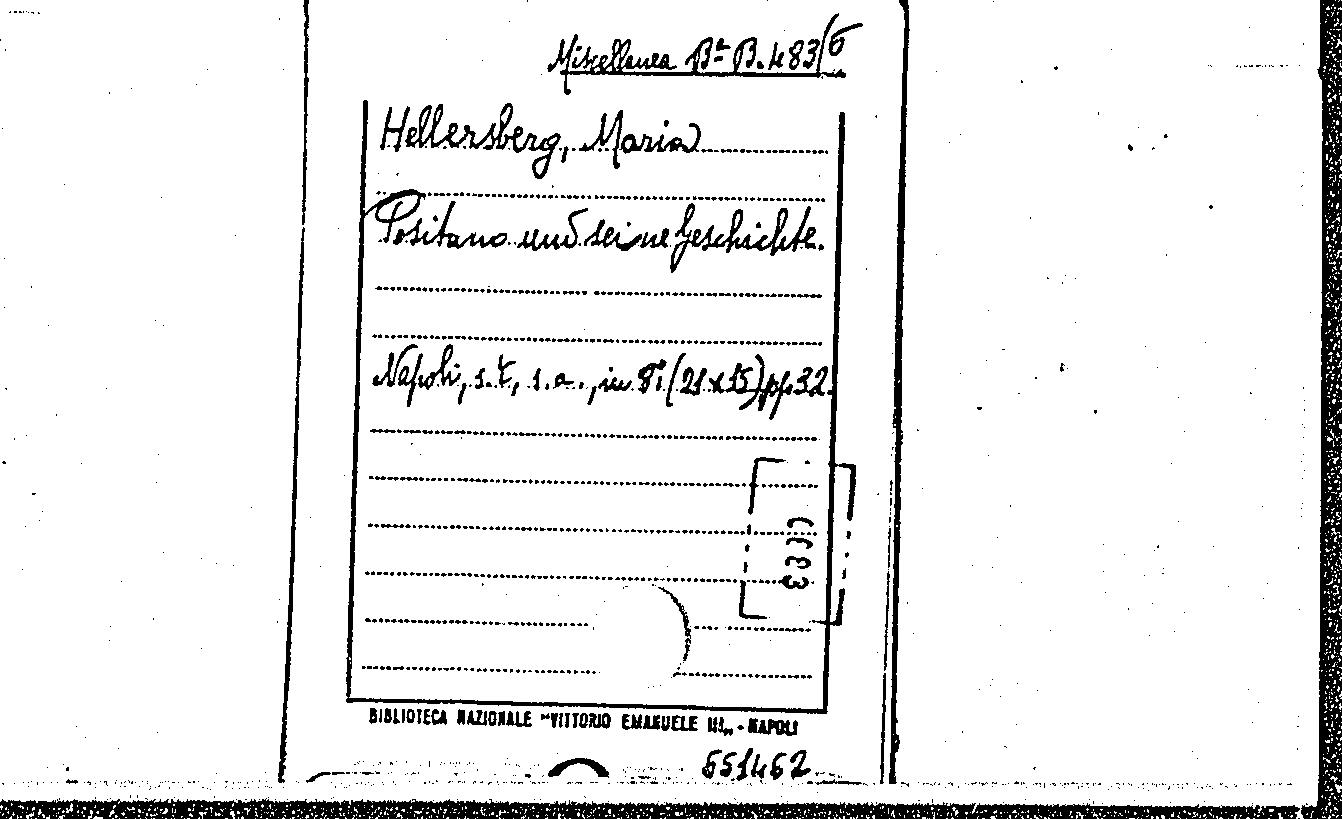 Miscellanea Bª B. 483/6
Hellersberg, Maria
Positano und seine Geschichte.
Napoli, s.t., s.a., in 8º (21x15) pp. 32.
BIBLIOTECA NAZIONALE "VITTORIO EMANUELE III„ - NAPOLI
551462